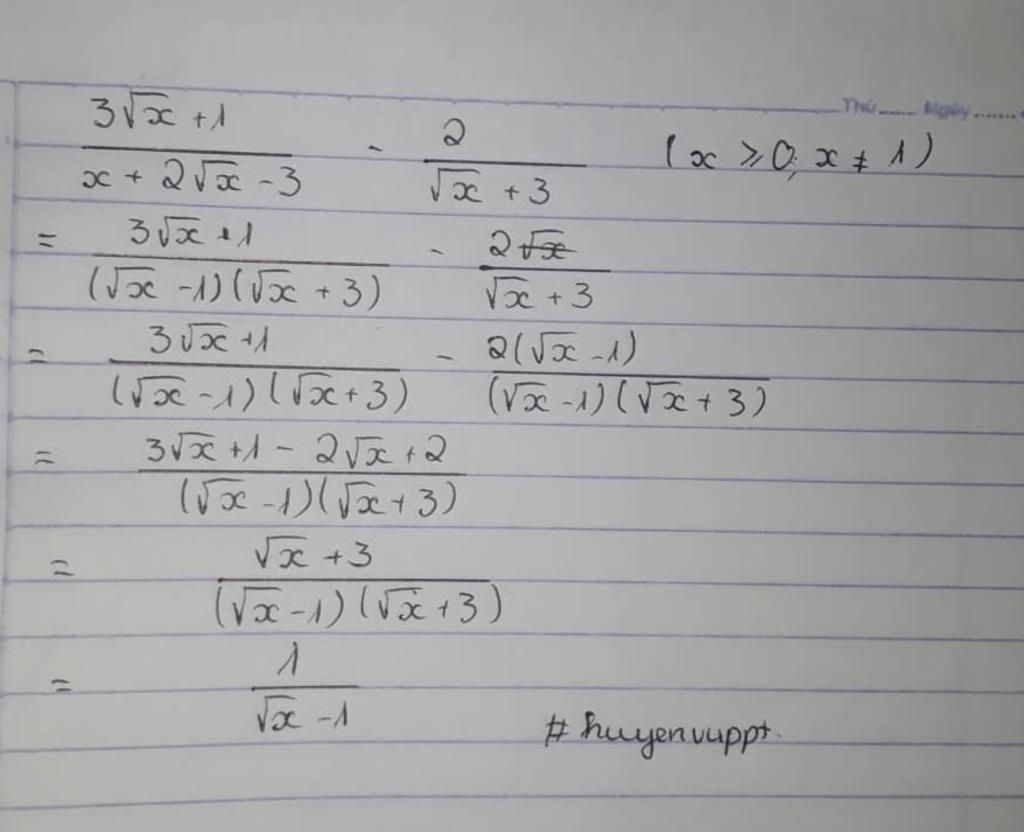 Thứ...... Ngày.......
(3√x + 1)/(x + 2√x - 3) - 2/(√x + 3) (x ≥ 0; x ≠ 1)
= (3√x + 1)/((√x - 1)(√x + 3)) - 2/(√x + 3)
= (3√x + 1)/((√x - 1)(√x + 3)) - 2(√x - 1)/((√x - 1)(√x + 3))
= (3√x + 1 - 2√x + 2)/((√x - 1)(√x + 3))
= (√x + 3)/((√x - 1)(√x + 3))
= 1/(√x - 1)
# huyenvuppt.